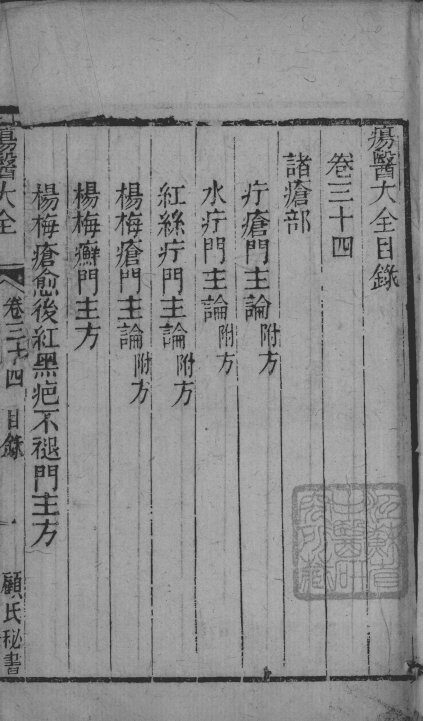 瘍醫大全目錄
卷三十四
諸瘡部
疔瘡門主論附方
水疔門主論附方
紅絲疔門主論附方
楊梅瘡門主論附方
楊梅癬門主方
楊梅瘡愈後紅黑疤不褪門主方
瘍醫大全 卷三十四 目錄 顧氏秘書